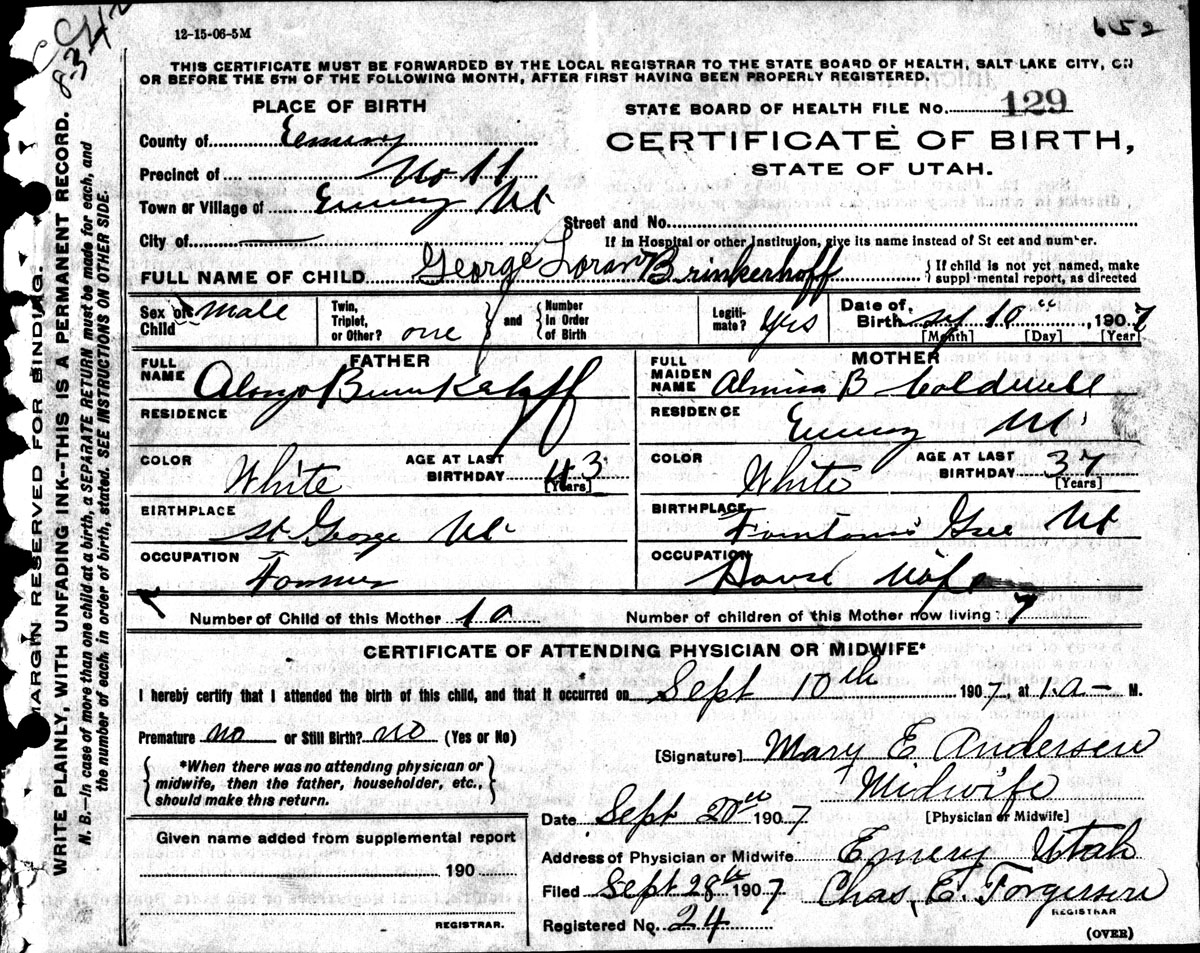 652
834
12-15-06-5M
THIS CERTIFICATE MUST BE FORWARDED BY THE LOCAL REGISTRAR TO THE STATE BOARD OF HEALTH, SALT LAKE CITY, ON
OR BEFORE THE 5TH OF THE FOLLOWING MONTH, AFTER FIRST HAVING BEEN PROPERLY REGISTERED.
PLACE OF BIRTH
County of Emery
Precinct of
Town or Village of Emery Ut
City of
STATE BOARD OF HEALTH FILE No. 129
CERTIFICATE OF BIRTH,
STATE OF UTAH.
Street and No.
If in Hospital or other Institution, give its name instead of St eet and number.
FULL NAME OF CHILD George Loran Brinkerhoff
{If child is not yet named, make
suppl mental report, as directed
Sex of Child Male
Twin, Triplet, or Other? one } and { Number in Order of Birth
Legiti-mate? Yes
Date of Birth 10 , 1907
[Month] [Day] [Year]
FATHER
FULL NAME Alonzo Brinkerhoff
RESIDENCE
COLOR White
AGE AT LAST BIRTHDAY 43
[Years]
BIRTHPLACE St George Ut
OCCUPATION Farmer
MOTHER
FULL MAIDEN NAME Almira B Coldwell
RESIDENCE Emery Ut
COLOR White
AGE AT LAST BIRTHDAY 37
[Years]
BIRTHPLACE Ut
OCCUPATION House Wife
Number of Child of this Mother 10
Number of children of this Mother now living 7
CERTIFICATE OF ATTENDING PHYSICIAN OR MIDWIFE*
I hereby certify that I attended the birth of this child, and that it occurred on Sept 10th 1907, at 1.a- M.
Premature no or Still Birth? no (Yes or No)
{*When there was no attending physician or
midwife, then the father, householder, etc.,
should make this return.}
[Signature] Mary E Andersen
Midwife
[Physician or Midwife]
Date Sept 20th 1907
Address of Physician or Midwife Emery Utah
Filed Sept 28th 1907 Chas. E. Torgersen
REGISTRAR
Registered No. 24
(OVER)
Given name added from supplemental report
190
REGISTRAR.
MARGIN RESERVED FOR BINDING.
WRITE PLAINLY, WITH UNFADING INK--THIS IS A PERMANENT RECORD.
N. B.--In case of more than one child at a birth, a SEPARATE RETURN must be made for each, and
the number of each, in order of birth, stated. SEE INSTRUCTIONS ON OTHER SIDE.